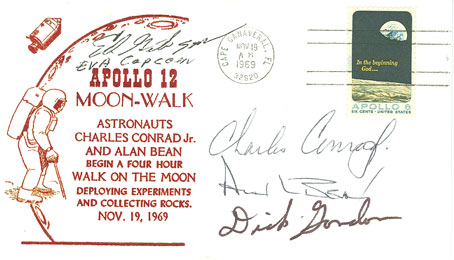 Ed Gibson
EVA Capcom
APOLLO 12
MOON-WALK
ASTRONAUTS
CHARLES CONRAD Jr.
AND ALAN BEAN
BEGIN A FOUR HOUR
WALK ON THE MOON
DEPLOYING EXPERIMENTS
AND COLLECTING ROCKS.
NOV. 19, 1969
CAPE CANAVERAL, FL
NOV 19
AM
1969
32920
In the beginning
God...
APOLLO 8
SIX CENTS · UNITED STATES
Charles Conrad Jr.
Alan L Bean
Dick Gordon